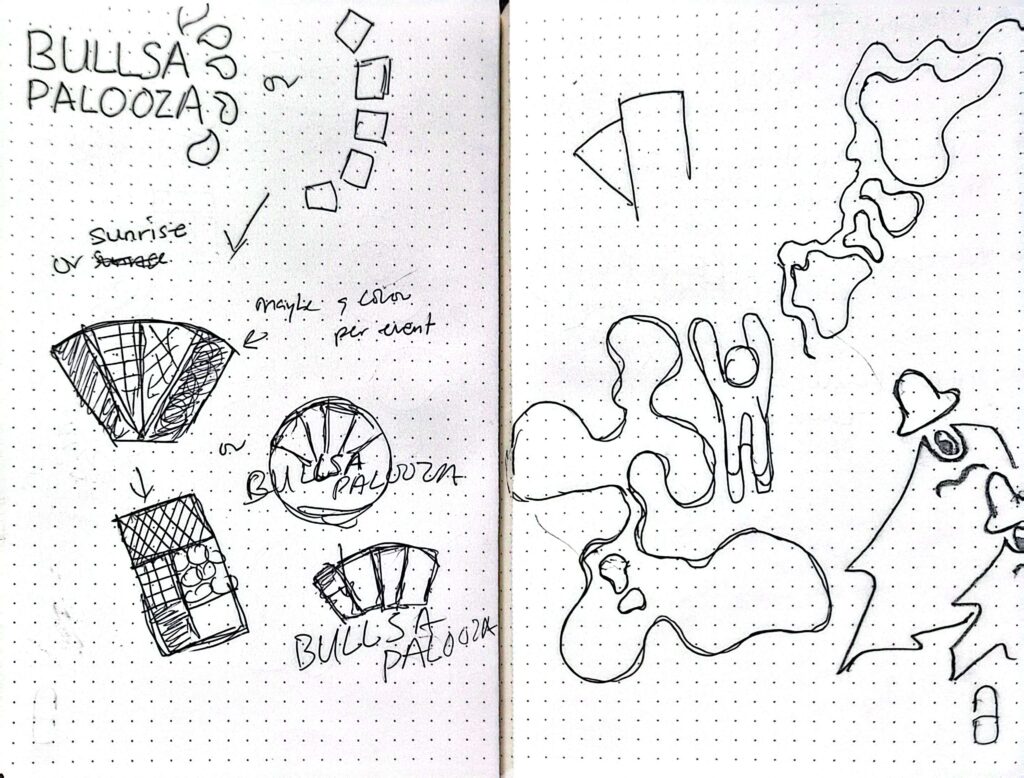 BULLSA
PALOOZA
or
sunrise
or
maybe a color
per event
or
BULLSA
PALOOZA
BULLSA
PALOOZA